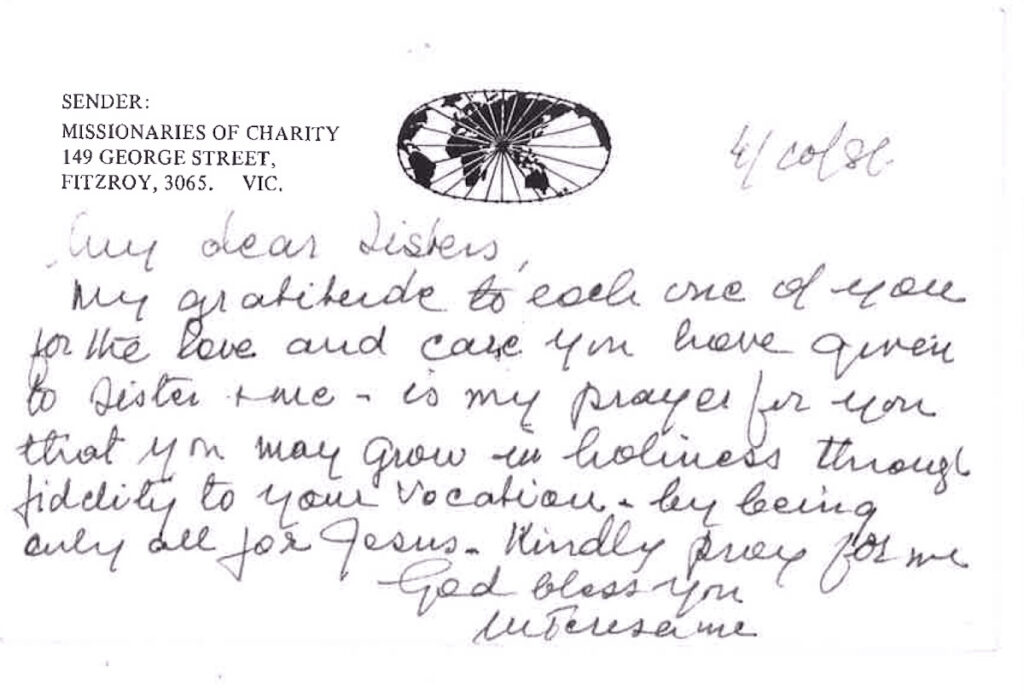 SENDER:
MISSIONARIES OF CHARITY
149 GEORGE STREET,
FITZROY, 3065. VIC.
My dear Sisters,
My gratitude to each one of you
for the love and care you have given
to Sister + me - is my prayer for you
that you may grow in holiness through
fidelity to your vocation - by being
only all for Jesus - Kindly pray for me
God bless you
M Teresa mc